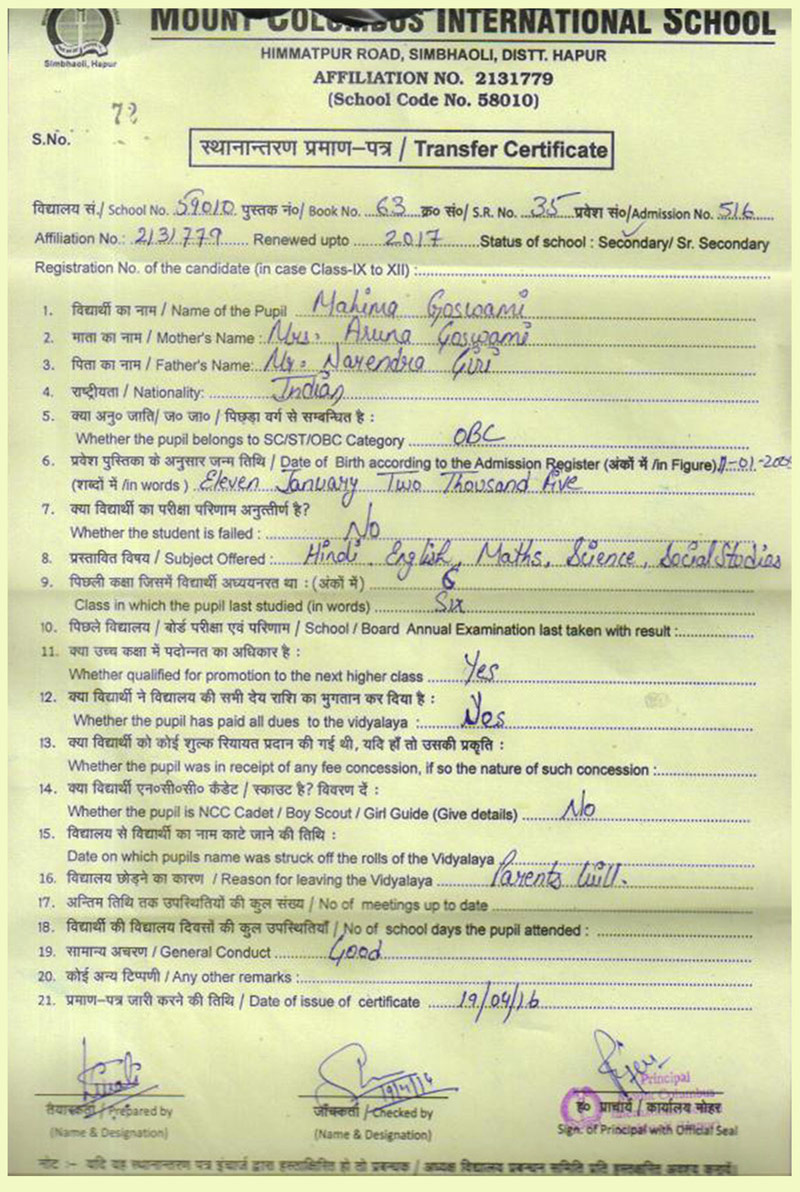 Simbhaoli, Hapur
MOUNT COLUMBUS INTERNATIONAL SCHOOL
HIMMATPUR ROAD, SIMBHAOLI, DISTT. HAPUR
AFFILIATION NO. 2131779
(School Code No. 58010)
72
S.No.
स्थानान्तरण प्रमाण-पत्र / Transfer Certificate
विद्यालय सं./ School No. 59010 पुस्तक नं०/ Book No. 63 क्र० सं०/ S.R. No. 35 प्रवेश सं०/Admission No. 516
Affiliation No.: 2131779 Renewed upto 2017 Status of school : Secondary/ Sr. Secondary
Registration No. of the candidate (in case Class-IX to XII) :
1. विद्यार्थी का नाम / Name of the Pupil Mahima Goswami
2. माता का नाम / Mother's Name : Mrs. Aruna Goswami
3. पिता का नाम / Father's Name: Mr. Narendra Giri
4. राष्ट्रीयता / Nationality: Indian
5. क्या अनु० जाति/ ज० जा० / पिछड़ा वर्ग से सम्बन्धित है :
Whether the pupil belongs to SC/ST/OBC Category OBC
6. प्रवेश पुस्तिका के अनुसार जन्म तिथि / Date of Birth according to the Admission Register (अंकों में /in Figure) 11-01-2005
(शब्दों में /in words ) Eleven January Two Thousand Five
7. क्या विद्यार्थी का परीक्षा परिणाम अनुत्तीर्ण है?
Whether the student is failed : No
8. प्रस्तावित विषय / Subject Offered : Hindi, English, Maths, Science, Social Studies
9. पिछली कक्षा जिसमें विद्यार्थी अध्ययनरत था : (अंकों में) 6
Class in which the pupil last studied (in words) Six
10. पिछले विद्यालय / बोर्ड परीक्षा एवं परिणाम / School / Board Annual Examination last taken with result :
11. क्या उच्च कक्षा में पदोन्नत का अधिकार है :
Whether qualified for promotion to the next higher class Yes
12. क्या विद्यार्थी ने विद्यालय की सभी देय राशि का भुगतान कर दिया है :
Whether the pupil has paid all dues to the vidyalaya : Yes
13. क्या विद्यार्थी को कोई शुल्क रियायत प्रदान की गई थी, यदि हाँ तो उसकी प्रकृति :
Whether the pupil was in receipt of any fee concession, if so the nature of such concession :
14. क्या विद्यार्थी एन०सी०सी० कैडेट / स्काउट है? विवरण दें :
Whether the pupil is NCC Cadet / Boy Scout / Girl Guide (Give details) No
15. विद्यालय से विद्यार्थी का नाम काटे जाने की तिथि :
Date on which pupils name was struck off the rolls of the Vidyalaya
16. विद्यालय छोड़ने का कारण / Reason for leaving the Vidyalaya Parents Will.
17. अन्तिम तिथि तक उपस्थितियों की कुल संख्य / No of meetings up to date
18. विद्यार्थी की विद्यालय दिवसों की कुल उपस्थितियाँ / No of school days the pupil attended :
19. सामान्य अचरण / General Conduct Good
20. कोई अन्य टिप्पणी / Any other remarks :
21. प्रमाण-पत्र जारी करने की तिथि / Date of issue of certificate 19/04/16
19/4/16
Principal
तैयारकर्ता / Prepared by जाँचकर्ता / Checked by ह० प्राचार्य / कार्यालय मोहर
(Name & Designation) (Name & Designation) Sign. of Principal with Official Seal
नोट :- यदि यह स्थानान्तरण पत्र इंचार्ज द्वारा हस्ताक्षरित हो तो प्रबन्धक / अध्यक्ष विद्यालय प्रबन्धन समिति प्रति हस्ताक्षरित अवश्य करायें